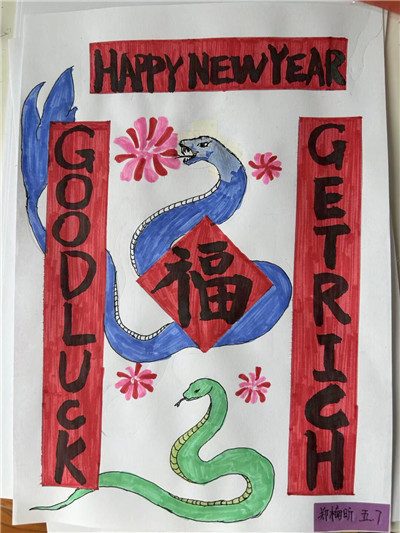 HAPPY NEW YEAR
GOOD LUCK
GET RICH
福